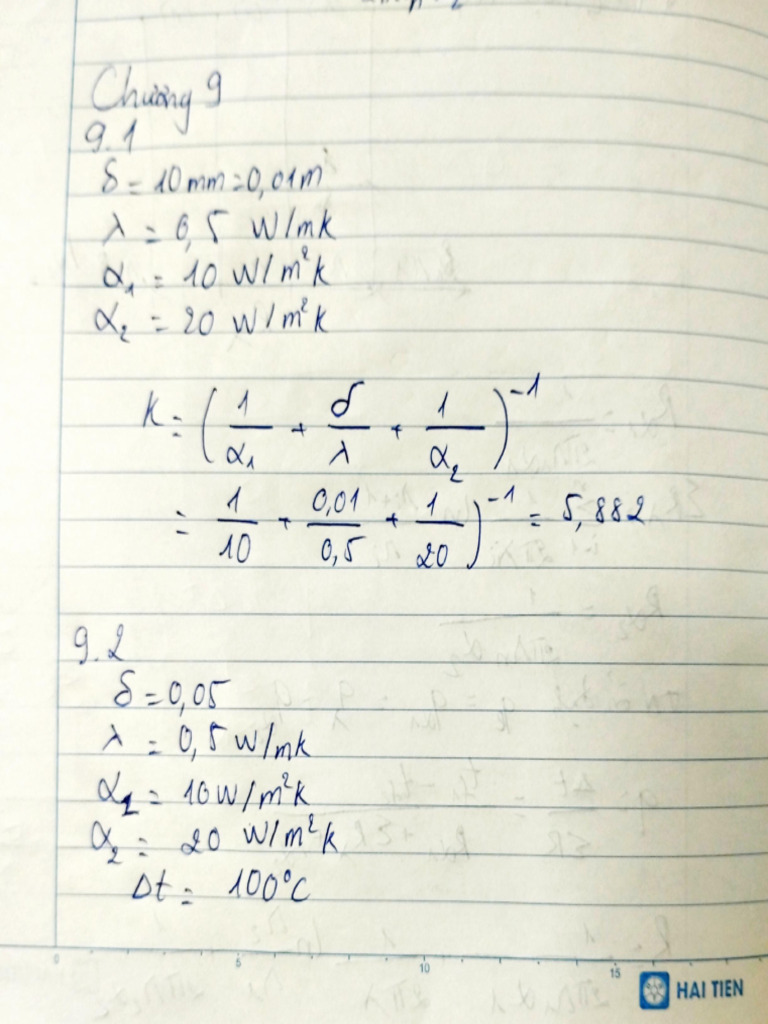 Chương 9
9.1
δ = 10mm = 0,01m
λ = 0,5 W/mk
α₁ = 10 W/m²k
α₂ = 20 W/m²k
K = (1/α₁ + δ/λ + 1/α₂)⁻¹
= 1/10 + 0,01/0,5 + 1/20)⁻¹ = 5,882
9.2
δ = 0,05
λ = 0,5 W/mk
α₁ = 10 W/m²k
α₂ = 20 W/m²k
Δt = 100°C
0 5 10 15
HAI TIEN